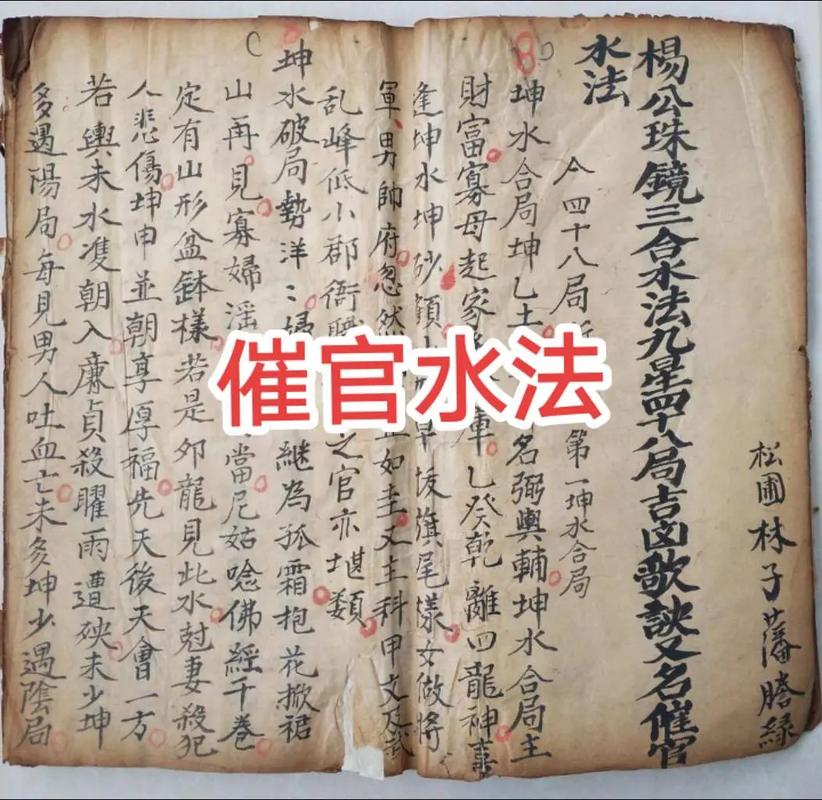 松圃林子藩謄録
楊公珠鏡三合水法九星四十八局吉凶歌訣又名催官
水法
四十八局 第一坤水合局
坤水合局坤乙土 名弼輿輔坤水合局主
財富寡母起家 庫乙癸乾離四龍神喜
逢坤水坤砂 旗尾樣女做將
軍男帥府忽然 如圭又主科甲文及武
乱峰低小郡衙 之官亦堪類
坤水破局勢洋〻婦 継為孤霜抱花掀裙
山再見寡婦滛 當尼姑唸佛經千巻
定有山形盆鉢樣若是夘龍見此水尅妻殺犯
人悲傷坤申並朝享厚福先天後天會一方
若輿未水㕠朝入廉貞殺曜雨遭殃未少坤
多遇陽局每見男人吐血亡未多坤少遇陰局
催官水法